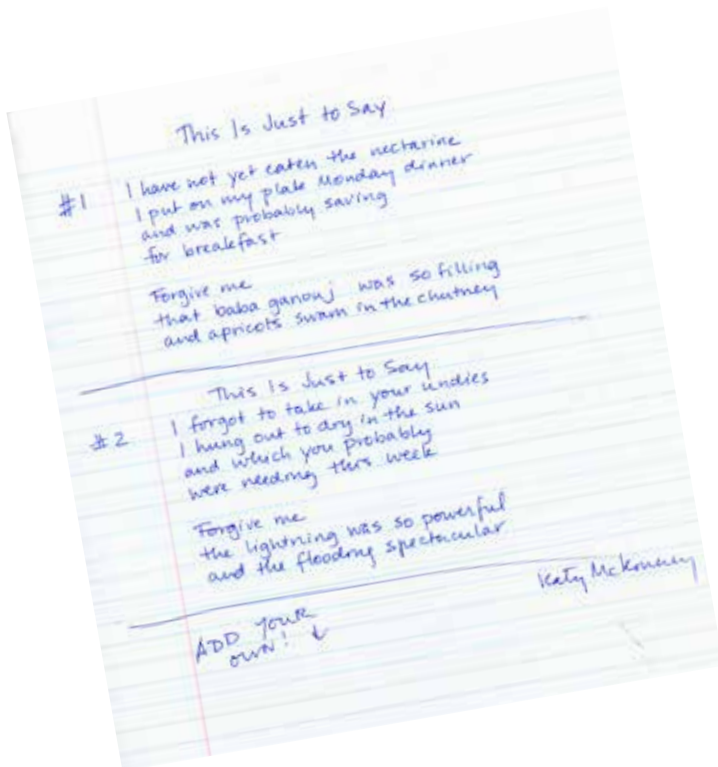 This Is Just to Say
#1 I have not yet eaten the nectarine
I put on my plate Monday dinner
and was probably saving
for breakfast
Forgive me
that baba ganouj was so filling
and apricots swam in the chutney
This Is Just to Say
#2 I forgot to take in your undies
I hung out to dry in the sun
and which you probably
were needing this week
Forgive me
the lightning was so powerful
and the flooding spectacular
Katy
ADD YOUR
OWN! ↓